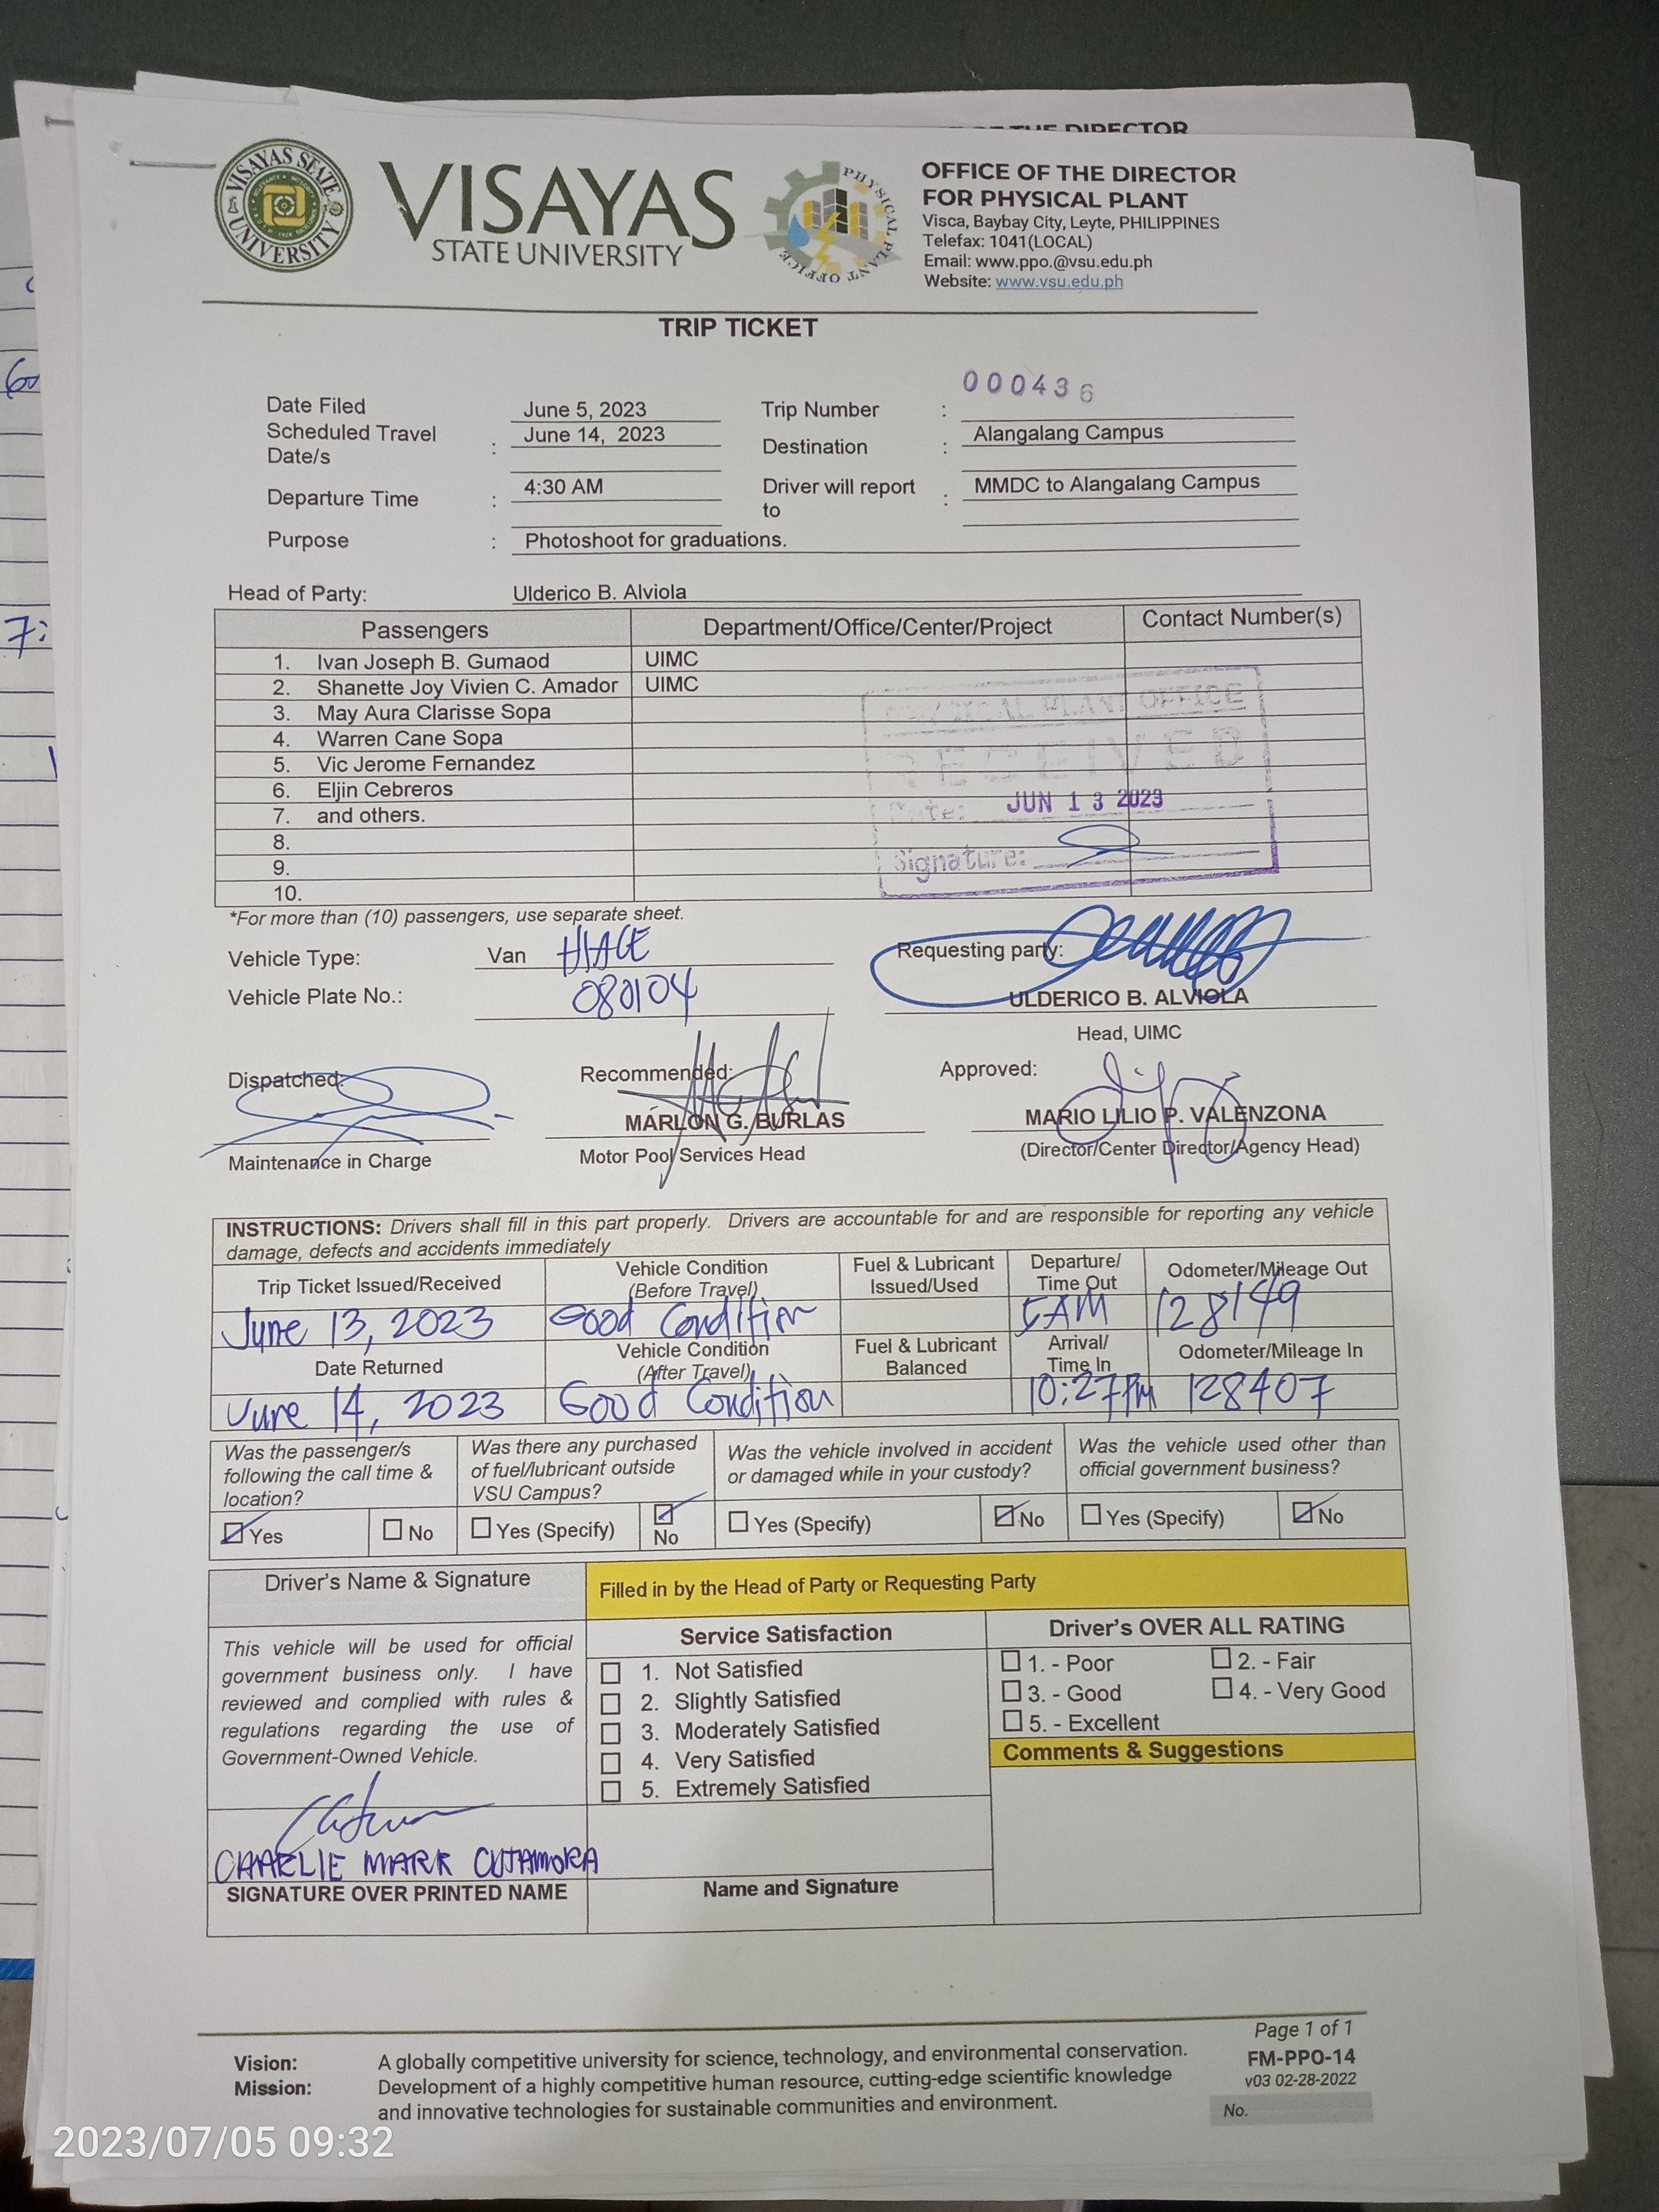 OF THE DIRECTOR
VISAYAS STATE UNIVERSITY
VISAYAS
STATE UNIVERSITY
PHYSICAL PLANT OFFICE
OFFICE OF THE DIRECTOR
FOR PHYSICAL PLANT
Visca, Baybay City, Leyte, PHILIPPINES
Telefax: 1041(LOCAL)
Email: www.ppo.@vsu.edu.ph
Website: www.vsu.edu.ph
TRIP TICKET
000436
Date Filed June 5, 2023 Trip Number :
Scheduled Travel Date/s : June 14, 2023 Destination : Alangalang Campus
Departure Time : 4:30 AM Driver will report to : MMDC to Alangalang Campus
Purpose : Photoshoot for graduations.
Head of Party: Ulderico B. Alviola
Passengers Department/Office/Center/Project Contact Number(s)
1. Ivan Joseph B. Gumaod UIMC
2. Shanette Joy Vivien C. Amador UIMC
3. May Aura Clarisse Sopa
4. Warren Cane Sopa
5. Vic Jerome Fernandez
6. Eljin Cebreros
7. and others.
8.
9.
10.
PHYSICAL PLANT OFFICE
RECEIVED
Date: JUN 13 2023
Signature:
*For more than (10) passengers, use separate sheet.
Vehicle Type: Van HIACE
Vehicle Plate No.: 080104
Requesting party:
ULDERICO B. ALVIOLA
Head, UIMC
Dispatched: Recommended: Approved:
MARLON G. BURLAS MARIO LILIO P. VALENZONA
Maintenance in Charge Motor Pool Services Head (Director/Center Director/Agency Head)
INSTRUCTIONS: Drivers shall fill in this part properly. Drivers are accountable for and are responsible for reporting any vehicle
damage, defects and accidents immediately
Trip Ticket Issued/Received Vehicle Condition (Before Travel) Fuel & Lubricant Issued/Used Departure/ Time Out Odometer/Mileage Out
June 13, 2023 Good Condition 5AM 128149
Date Returned Vehicle Condition (After Travel) Fuel & Lubricant Balanced Arrival/ Time In Odometer/Mileage In
June 14, 2023 Good Condition 10:27PM 128407
Was the passenger/s following the call time & location? Was there any purchased of fuel/lubricant outside VSU Campus? Was the vehicle involved in accident or damaged while in your custody? Was the vehicle used other than official government business?
Yes No Yes (Specify) No Yes (Specify) No Yes (Specify) No
Driver's Name & Signature
Filled in by the Head of Party or Requesting Party
This vehicle will be used for official
government business only. I have
reviewed and complied with rules &
regulations regarding the use of
Government-Owned Vehicle.
CHARLIE MARK CUTAMORA
SIGNATURE OVER PRINTED NAME
Service Satisfaction
1. Not Satisfied
2. Slightly Satisfied
3. Moderately Satisfied
4. Very Satisfied
5. Extremely Satisfied
Name and Signature
Driver's OVER ALL RATING
1. - Poor 2. - Fair
3. - Good 4. - Very Good
5. - Excellent
Comments & Suggestions
Vision: A globally competitive university for science, technology, and environmental conservation.
Mission: Development of a highly competitive human resource, cutting-edge scientific knowledge
and innovative technologies for sustainable communities and environment.
Page 1 of 1
FM-PPO-14
v03 02-28-2022
No.
2023/07/05 09:32